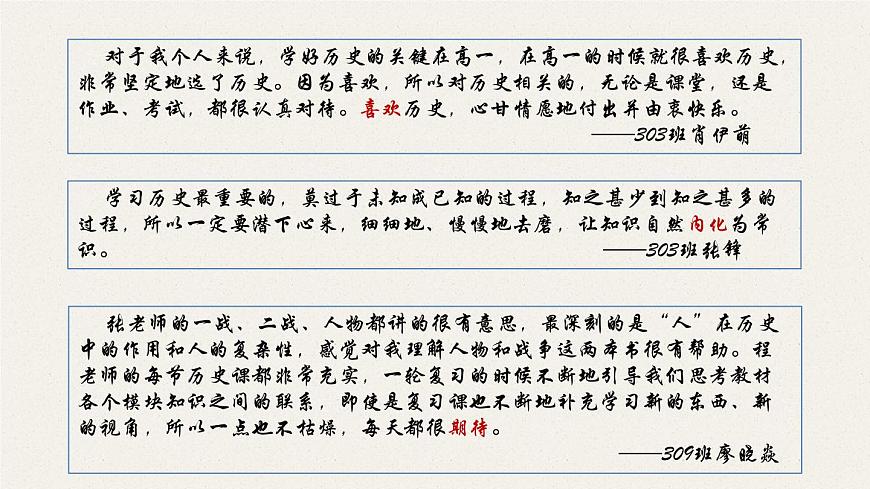 对于我个人来说，学好历史的关键在高一，在高一的时候就很喜欢历史，
非常坚定地选了历史。因为喜欢，所以对历史相关的，无论是课堂，还是
作业、考试，都很认真对待。喜欢历史，心甘情愿地付出并由衷快乐。
——303班肖伊萌
学习历史最重要的，莫过于未知成已知的过程，知之甚少到知之甚多的
过程，所以一定要潜下心来，细细地、慢慢地去磨，让知识自然内化为常
识。 ——303班张锋
张老师的一战、二战、人物都讲的很有意思，最深刻的是“人”在历史
中的作用和人的复杂性，感觉对我理解人物和战争这两本书很有帮助。程
老师的每节历史课都非常充实，一轮复习的时候不断地引导我们思考教材
各个模块知识之间的联系，即使是复习课也不断地补充学习新的东西、新
的视角，所以一点也不枯燥，每天都很期待。
——309班廖晓焱